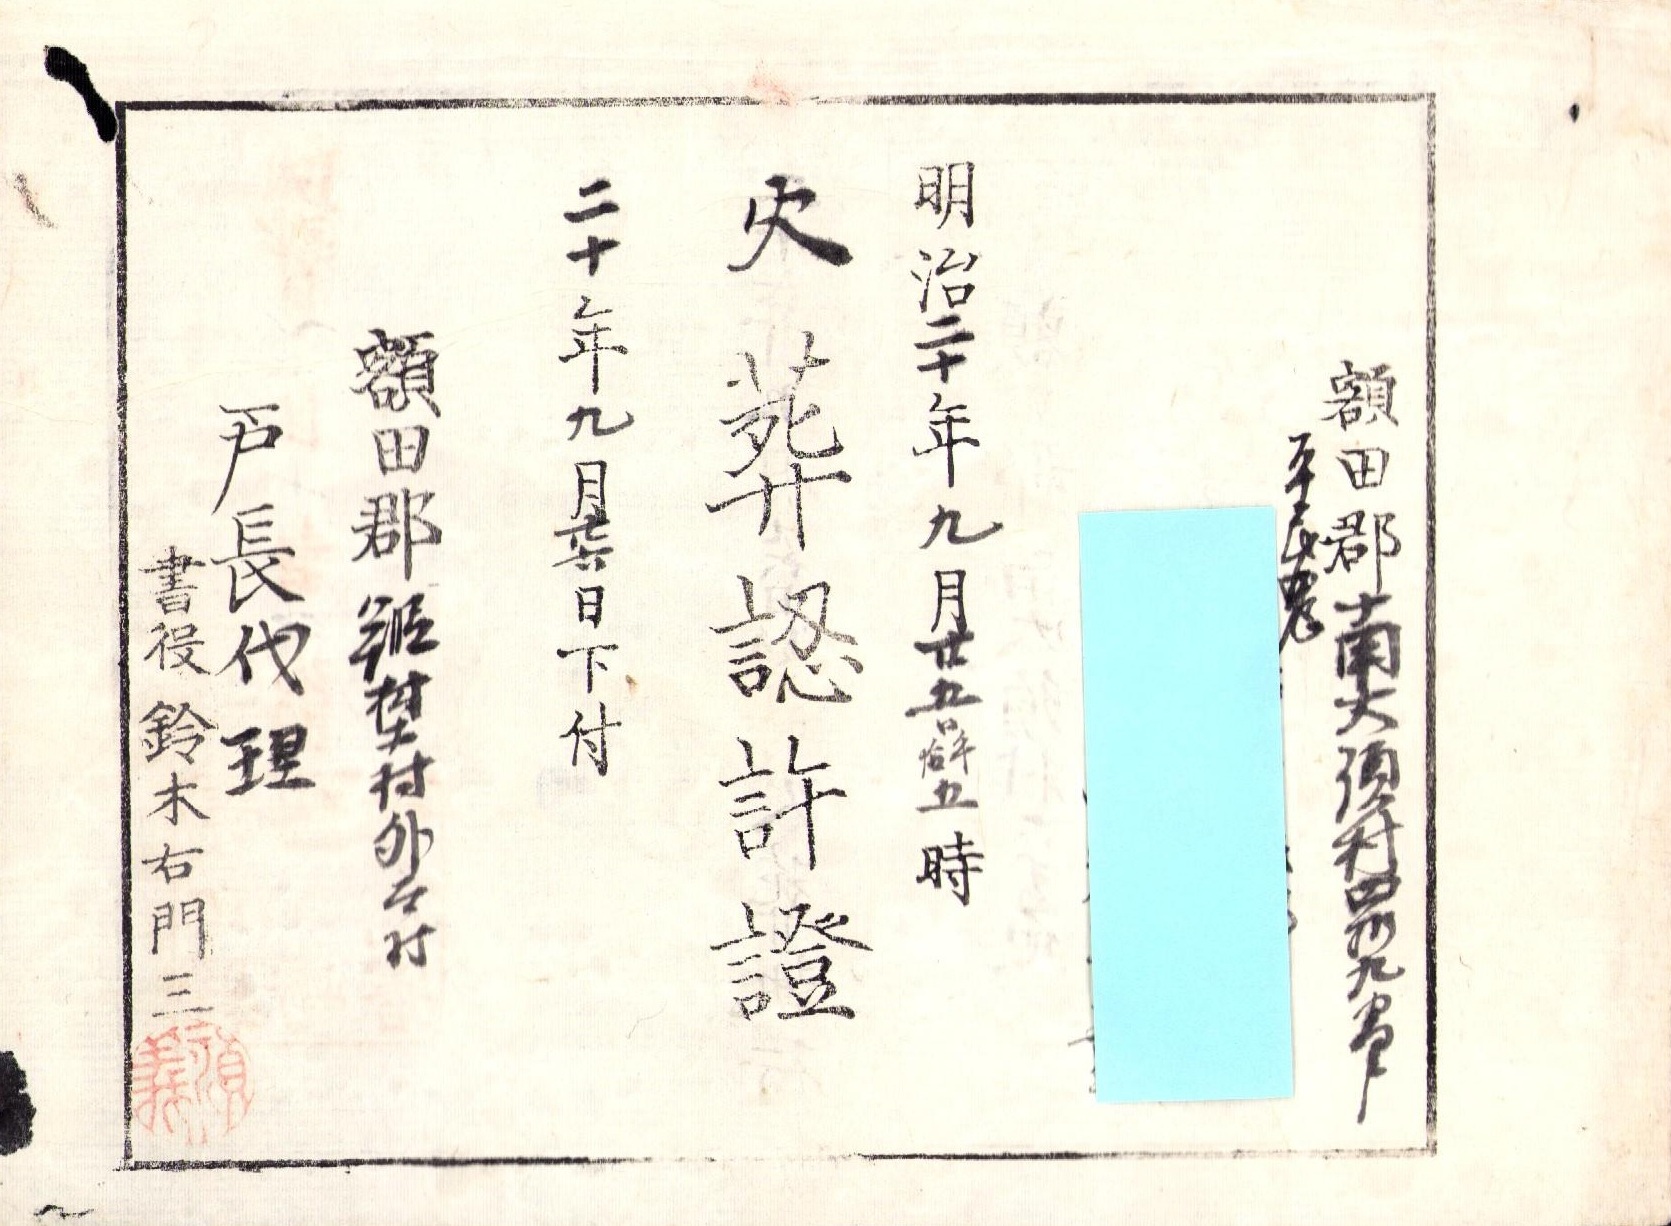 額田郡南大須村四拾九番戸
平民農
明治二十年九月廿五日午后五時
火葬認許證
二十年九月廿六日下付
額田郡
村外
村
戸長代理
書役鈴木右門三